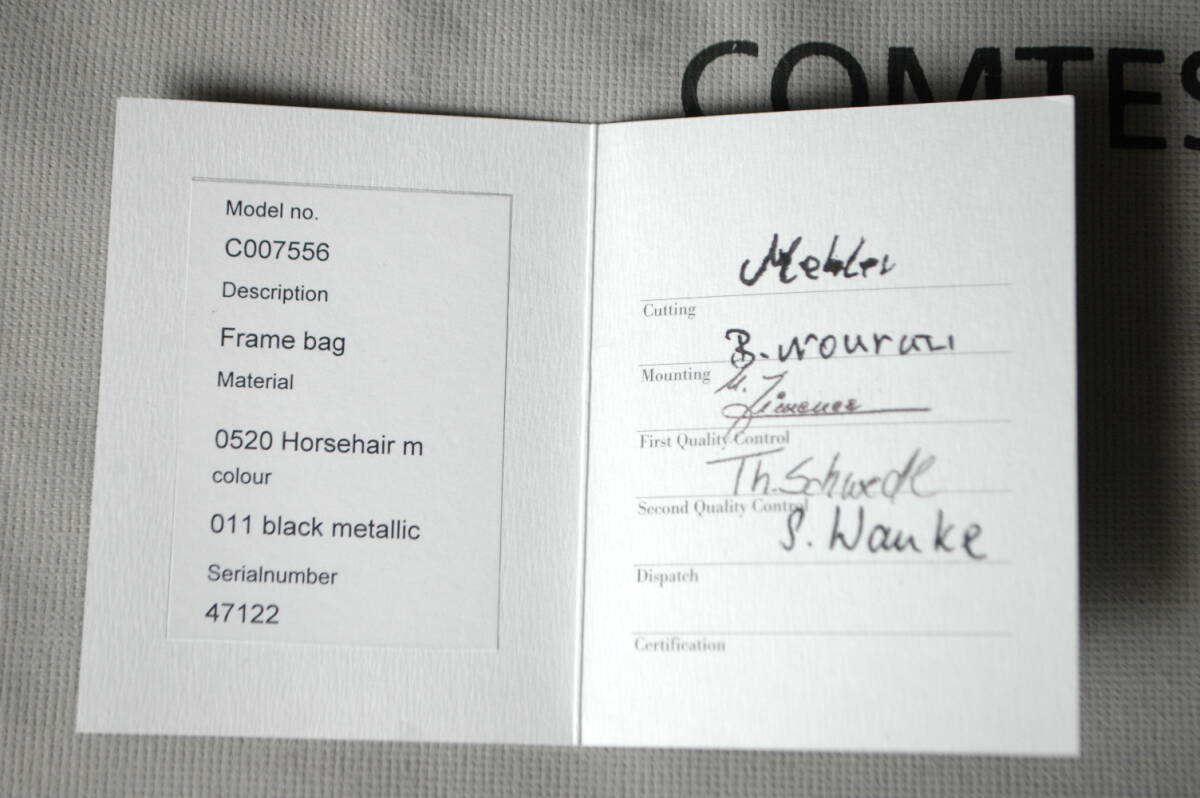 COMTES
Model no.
C007556
Description
Frame bag
Material
0520 Horsehair m
colour
011 black metallic
Serialnumber
47122
Cutting
B.
Mounting
First Quality Control
Th. Schwedl
Second Quality Control
S. Wanke
Dispatch
Certification